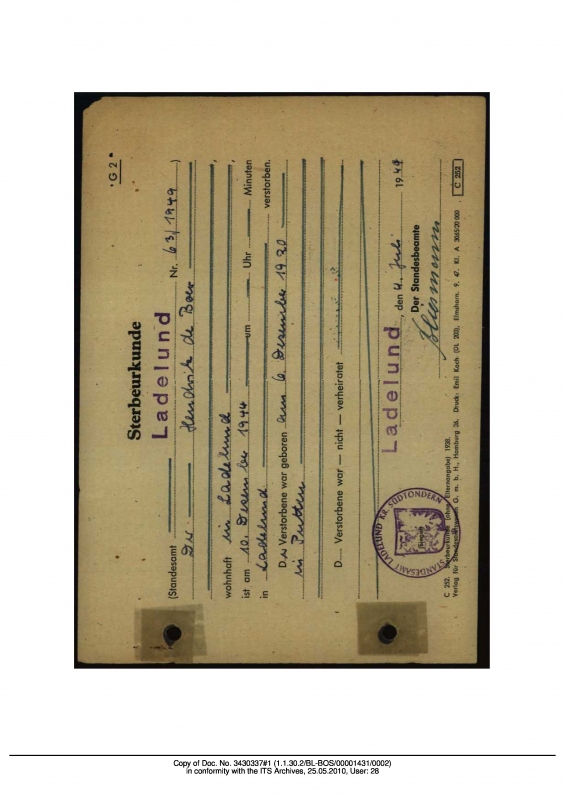 G 2
Sterbeurkunde
(Standesamt Ladelund Nr. 63/1949)
Der Hendrik de Boer
wohnhaft in Ladelund
ist am 10. Dezember 1944 um Uhr Minuten
in Ladelund verstorben.
Der Verstorbene war geboren am 6. Dezember 1920
in Putten
D Verstorbene war — nicht — verheiratet
Ladelund, den 4. Juli 1949
Der Standesbeamte
STANDESAMT LADELUND KR. SÜDTONDERN
Siegel
C 252. Sterbeurkunde (ohne Elternangabe) 1938.
Verlag für Standesamtswesen G. m. b. H., Hamburg 36. Druck: Emil Koch (GL 203), Elmshorn. 9. 47. Kl. A
C 252
Copy of Doc. No. 3430337#1 (1.1.30.2/BL-BOS/00001431/0002)
in conformity with the ITS Archives, 25.05.2010, User: 28